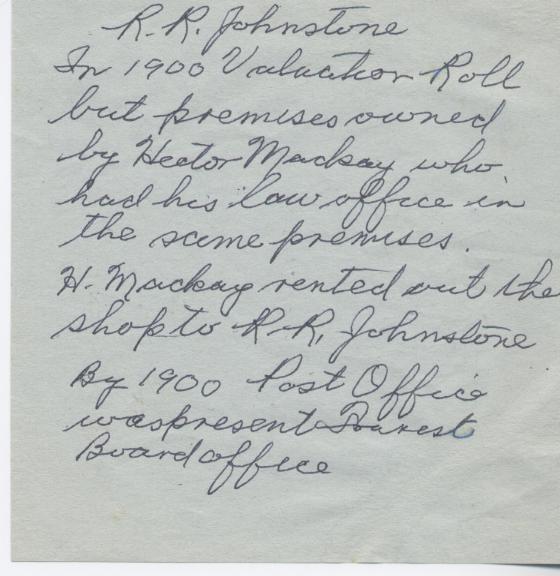 R.R. Johnstone
In 1900 Valuation Roll
but premises owned
by Hector Mackay who
had his law office in
the same premises.
H. Mackay rented out the
shop to R.R. Johnstone
By 1900 Post Office
was present Tourist
Board office